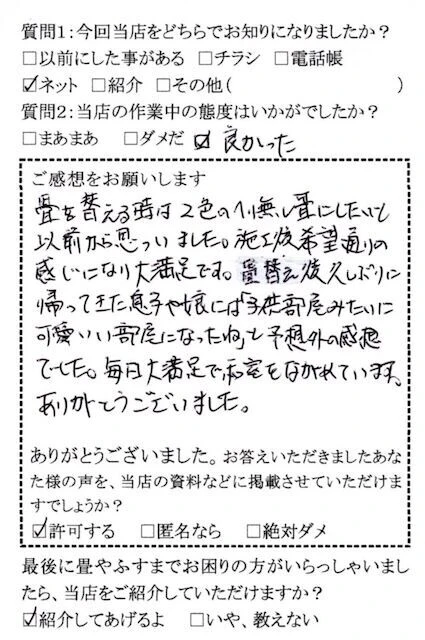 質問1：今回当店をどちらでお知りになりましたか？
□以前にした事がある □チラシ □電話帳
☑ネット □紹介 □その他( )
質問2：当店の作業中の態度はいかがでしたか？
□まあまあ □ダメだ ☑ 良かった
ご感想をお願いします
畳を替える時は2色のヘリ無し畳にしたいと
以前から思っいました。施工後希望通りの
感じになり大満足です。畳替え後久しぶりに
帰ってきた息子や娘には「子供部屋みたいに
可愛いい部屋になったね」と予想外の感想
でした。毎日大満足で和室をながめています。
ありがとうございました。
ありがとうございました。お答えいただきましたあな
た様の声を、当店の資料などに掲載させていただけま
すでしょうか？
☑許可する □匿名なら □絶対ダメ
最後に畳やふすまでお困りの方がいらっしゃいまし
たら、当店をご紹介していただけますか？
☑紹介してあげるよ □いや、教えない